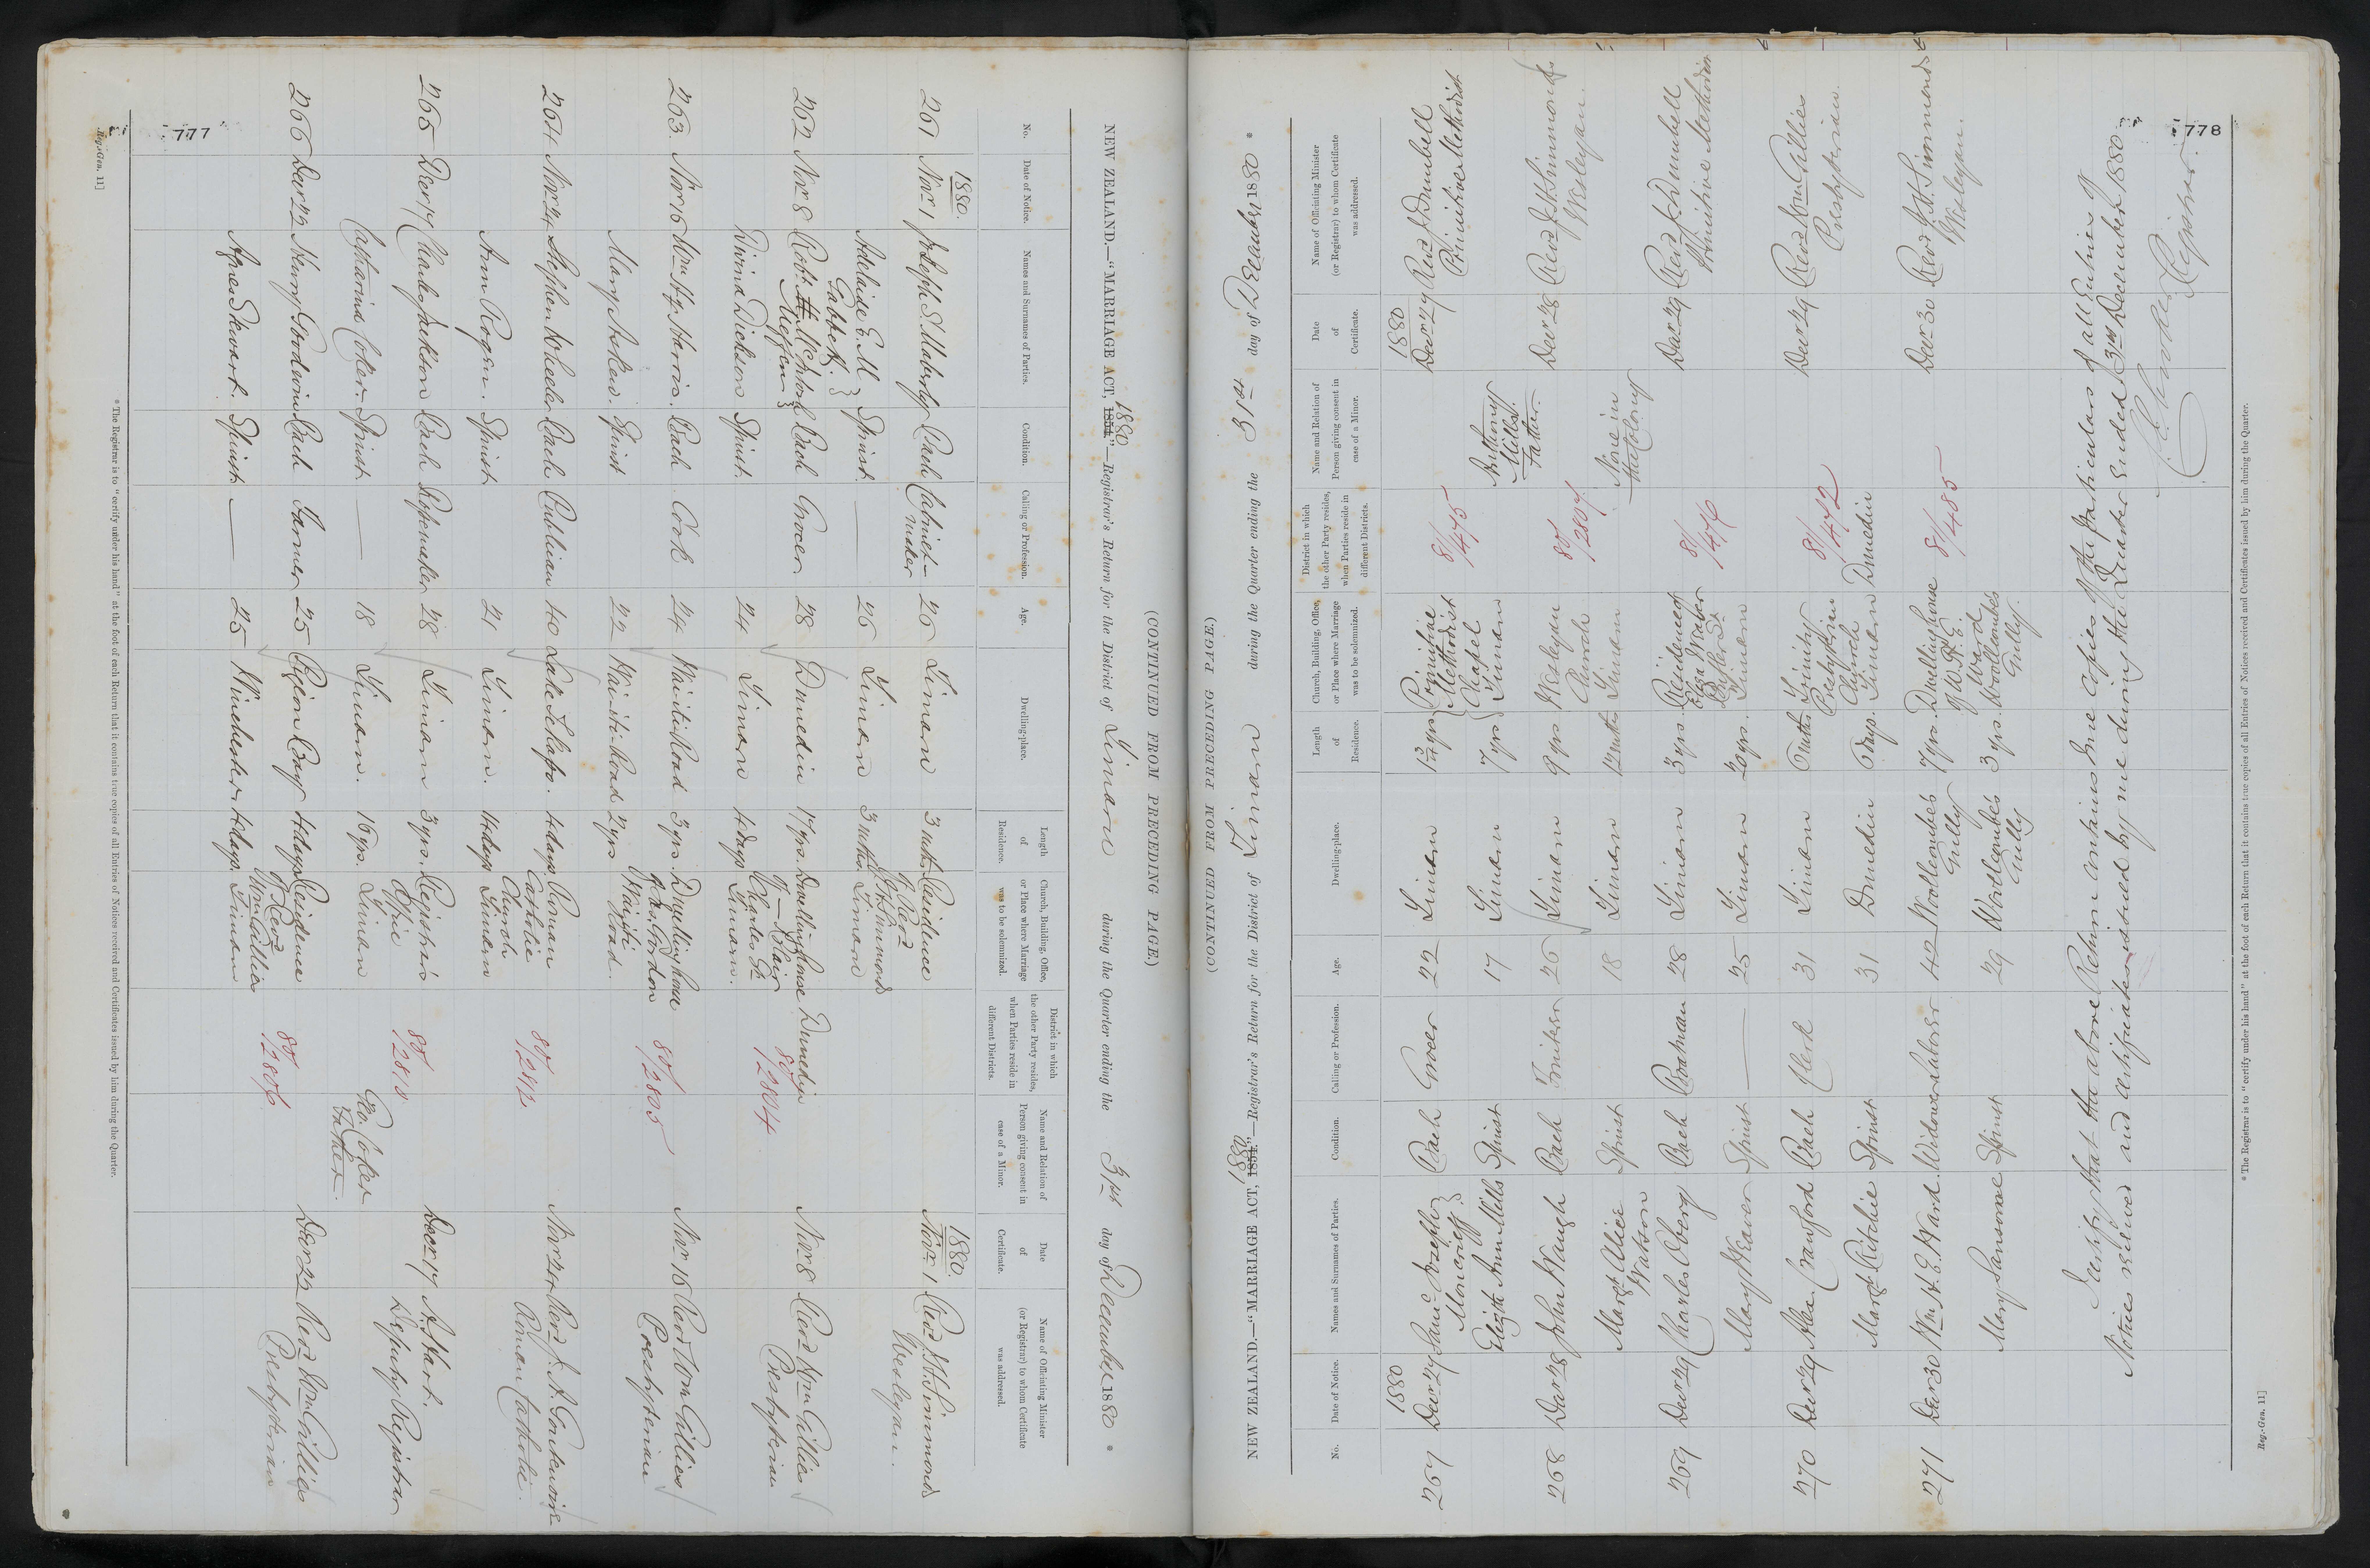 777
(CONTINUED FROM PRECEDING PAGE.)
NEW ZEALAND.—"MARRIAGE ACT, 1854 1880"—Registrar's Return for the District of Timaru during the Quarter ending the 31st day of December 1880 *
No.
Date of Notice.
Names and Surnames of Parties.
Condition.
Calling or Profession.
Age.
Dwelling-place.
Length of Residence.
Church, Building, Office, or Place where Marriage was to be solemnized.
District in which the other Party resides, when Parties reside in different Districts.
Name and Relation of Person giving consent in case of a Minor.
Date of Certificate.
Name of Officiating Minister (or Registrar) to whom Certificate was addressed.
1880. 1880.
261 Novr 1 Joseph S. Maberly Bach Cabinet-maker 26 Timaru 3 mths Residence of Revd J. H. Simmonds Novr 1 Revd J. H. Simmonds
Adelaide E. M. Gabbet. Spinst — 26 Timaru 3 mths Timaru Wesleyan.
262 Nov 8 Robt Bach Grocer 28 Dunedin 17 yrs. Dwellinghouse of — Blair Charles St Dunedin 80/2804 Nov 8 Revd Wm Gillies
Divina Dickson Spinst. 24 Timaru 4 days Timaru. Presbyterian
263. Nov 16 Wm Hy. Harris. Bach Cook 24 Wai-iti Road 3 yrs. Dwellinghouse of Jas. Gordon 80/2805 Nov 16 Revd Wm Gillies
Mary Askew. Spinst 22 Wai-iti Road 2 yrs Wai-iti Road. Presbyterian
264 Nov 24 Stephen Wheeler Bach Publican 40 Lake Tekapo. 4 days Roman Catholic Church 80/2812 Nov 24 Revd
Ann Rogers. Spinst 21 Timaru. 4 days Timaru Roman Catholic.
265 Decr 17 Charles Jackson Bach Ropemaker 28 Timaru 3 yrs. Registrar's Office 80/2810 Decr 17 A. Hart.
Catharina Coker Spinst — 18 Timaru. 16 yrs. Timaru Geo. Coker Father. Deputy Registrar
266 Decr 23 Henry Goodwin Bach Farmer 25 Pigeon Bay 4 days Residence of Revd Wm Gillies 80/2806 Decr 23 Revd Wm Gillies
Agnes Stewart. Spinst — 25 Winchester 4 days. Timaru Presbyterian
* The Registrar is to "certify under his hand" at the foot of each Return that it contains true copies of all Entries of Notices received and Certificates issued by him during the Quarter.
Reg.-Gen. 11]
778
(CONTINUED FROM PRECEDING PAGE.)
NEW ZEALAND.—"MARRIAGE ACT, 1854 1880"—Registrar's Return for the District of Timaru during the Quarter ending the 31st day of December 1880 *
No.
Date of Notice.
Names and Surnames of Parties.
Condition.
Calling or Profession.
Age.
Dwelling-place.
Length of Residence.
Church, Building, Office, or Place where Marriage was to be solemnized.
District in which the other Party resides, when Parties reside in different Districts.
Name and Relation of Person giving consent in case of a Minor.
Date of Certificate.
Name of Officiating Minister (or Registrar) to whom Certificate was addressed.
1880 1880
267 Decr 27 Saml Joseph Moncrieff. Bach Grocer 22 Timaru Primitive Methodist Chapel 81/475 Decr 27 Revd J. Dumbell
Elizth Ann Mills Spinst 17 Timaru 7 yrs Timaru Anthony Mills. Father. Primitive Methodist
268 Decr 28 John Waugh Bach 26 Timaru 9 yrs Wesleyan Church 80/2807 Decr 28 Revd J. H. Simmonds
Margt Alice Watson Spinst 18 Timaru 12 mths Timaru None in the Colony Wesleyan.
269 Decr 29 Charles Oberg Bach 28 Timaru 3 yrs. Residence of Eliza Weaver 81/476 Decr 29 Revd Jos. Dumbell
Mary Weaver Spinst — 25 Timaru 20 yrs. Timaru Primitive Methodist
270 Decr 29 Alex. Crawford Bach Clerk 31 Timaru 6 mths Trinity Presbyterian Church 81/472 Decr 29 Revd Wm Gillies
Margt Ritchie Spinst 31 Dunedin 6 days. Timaru Dunedin Presbyterian.
271 Decr 30 Wm H. E. Ward. Widower Laborer 42 Woollcombes Gully 7 yrs. Dwellinghouse of W. H. E. Ward 81/485 Decr 30 Revd J. H. Simmonds
Mary Sansome Spinst 29 Woollcombes Gully 3 yrs Woollcombes Gully. Wesleyan.
I certify that the above Return contains true copies of the particulars of all Entries of
Notices received and certificates issued by me during the Quarter Ended 31st December 1880
Registrar.
* The Registrar is to "certify under his hand" at the foot of each Return that it contains true copies of all Entries of Notices received and Certificates issued by him during the Quarter.
Reg.-Gen. 11]